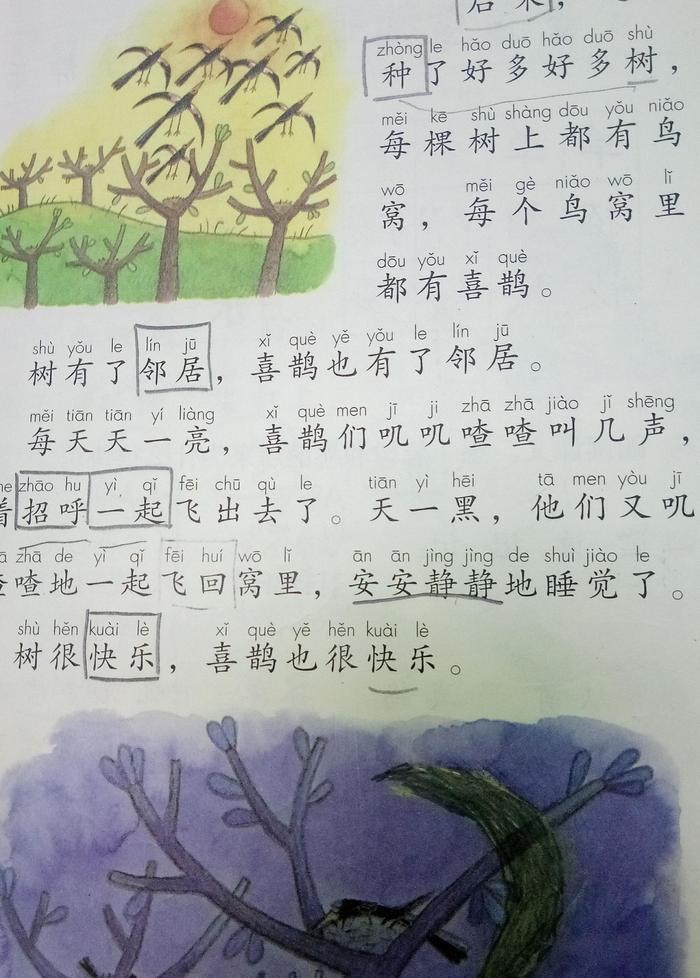 zhòng le hǎo duō hǎo duō shù
种了好多好多树，
měi kē shù shàng dōu yǒu niǎo
每棵树上都有鸟
wō měi gè niǎo wō lǐ
窝，每个鸟窝里
dōu yǒu xǐ què
都有喜鹊。
shù yǒu le lín jū xǐ què yě yǒu le lín jū
树有了邻居，喜鹊也有了邻居。
měi tiān tiān yí liàng xǐ què men jī ji zhā zhā jiào jǐ shēng
每天天一亮，喜鹊们叽叽喳喳叫几声，
zhāo hu yì qǐ fēi chū qù le tiān yì hēi tā men yòu jī
着招呼一起飞出去了。天一黑，他们又叽
zhā de yì qǐ fēi huí wō lǐ ān ān jìng jìng de shuì jiào le
喳地一起飞回窝里，安安静静地睡觉了。
shù hěn kuài lè xǐ què yě hěn kuài lè
树很快乐，喜鹊也很快乐。